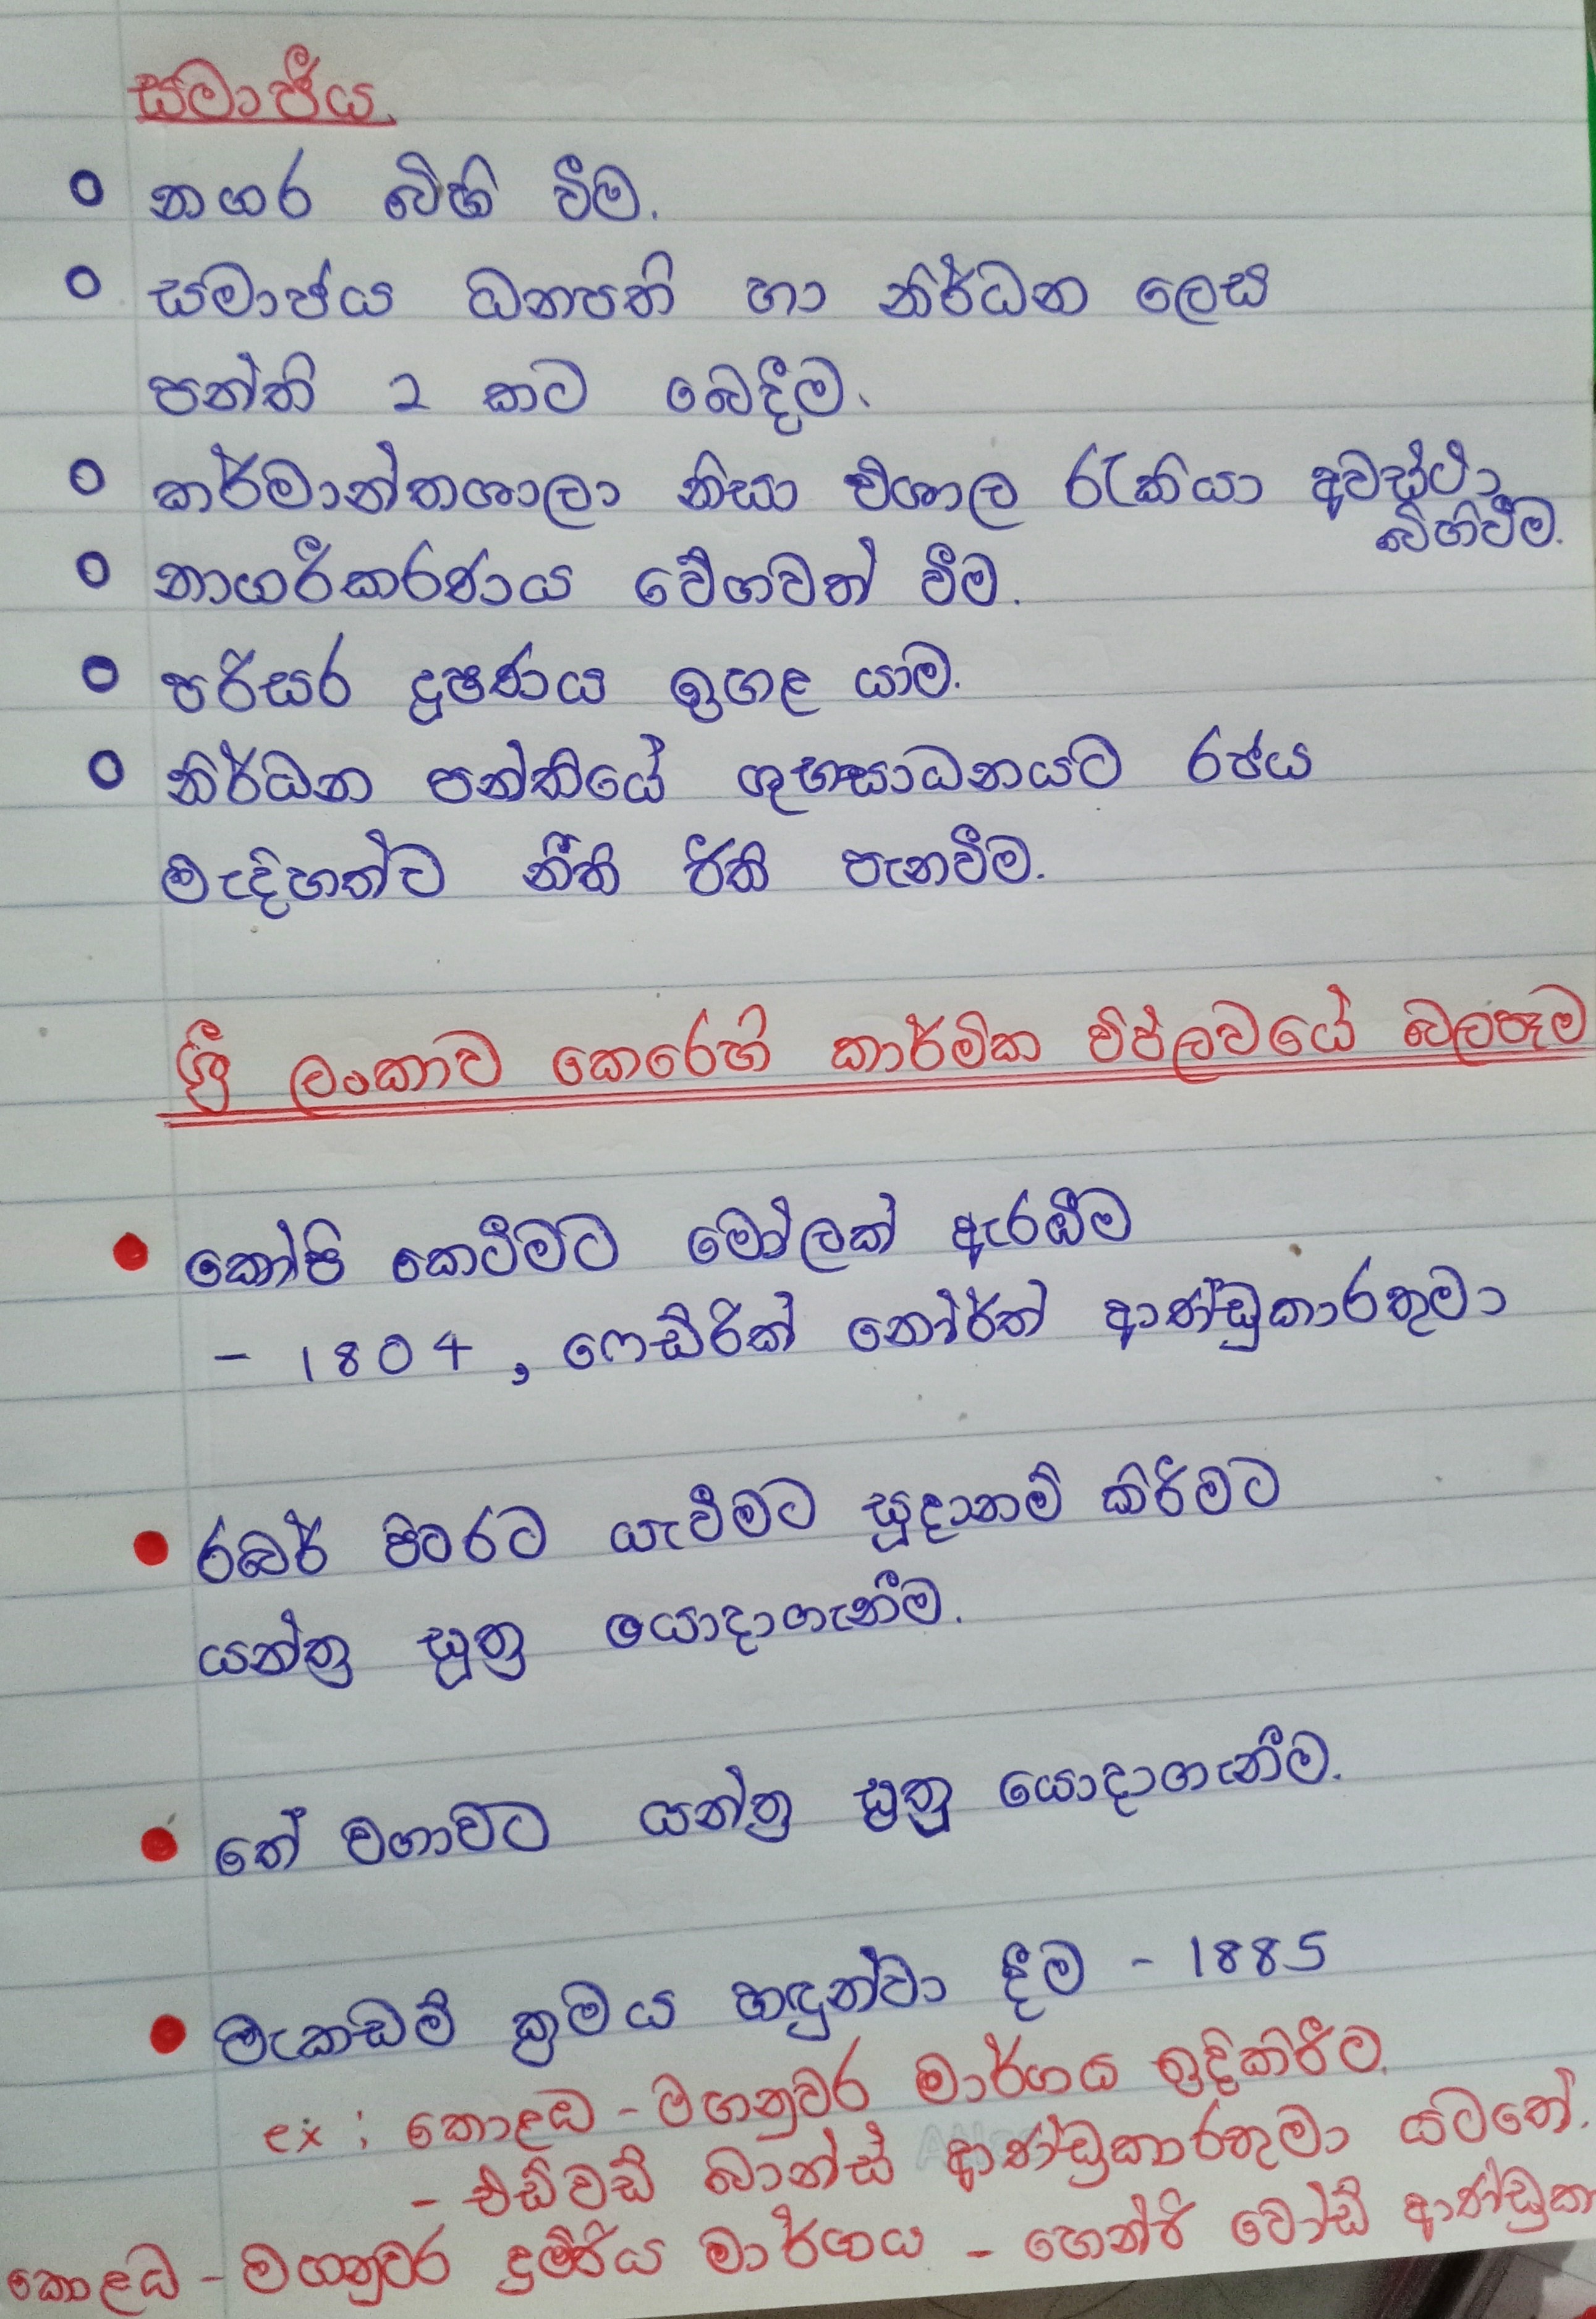 සමාජීය.
නගර බිහි වීම.
සමාජය ධනපති හා නිර්ධන ලෙස
පන්ති 2 කට බෙදීම.
කර්මාන්තශාලා නිසා විශාල රැකියා අවස්ථා
බිහිවීම.
නාගරීකරණය වේගවත් වීම.
පරිසර දූෂණය ඉහළ යාම.
නිර්ධන පන්තියේ ශුභසාධනයට රජය
මැදිහත්ව නීති රීති පැනවීම.
ශ්‍රී ලංකාව කෙරෙහි කාර්මික විප්ලවයේ බලපෑම
කෝපි කෙටීමට මෝලක් ඇරඹීම
- 1804, ෆෙඩ්රික් නෝර්ත් ආණ්ඩුකාරතුමා
රබර් පිටරට යැවීමට සූදානම් කිරීමට
යන්ත්‍ර සූත්‍ර යොදාගැනීම.
තේ වගාවට යන්ත්‍ර සූත්‍ර යොදාගැනීම.
මැකඩම් ක්‍රමය හඳුන්වා දීම - 1885
ex : කොළඹ - මහනුවර මාර්ගය ඉදිකිරීම.
- එඩ්වඩ් බාන්ස් ආණ්ඩුකාරතුමා යටතේ.
කොළඹ - මහනුවර දුම්රිය මාර්ගය - හෙන්රි වෝඩ් ආණ්ඩුකා